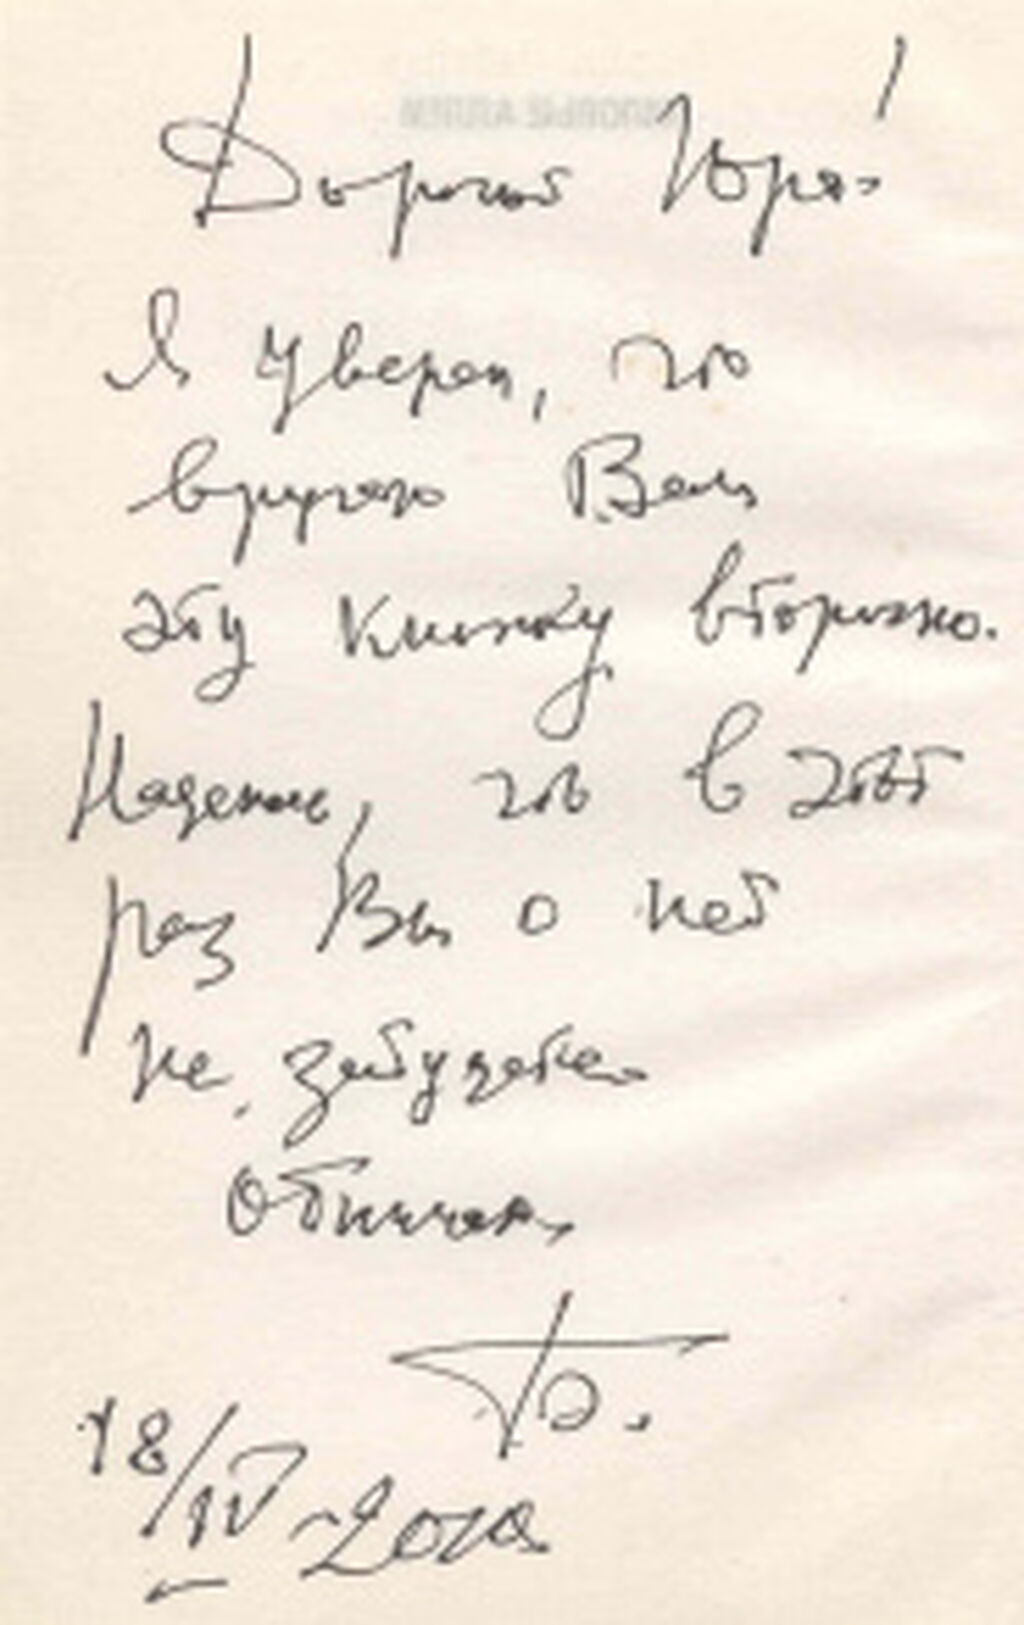 Дорогой Юра!
Я уверен, что
вручаю Вам
эту книжку вторично.
Надеюсь, что в этот
раз Вы о ней
не забудете.
Обнимаю,
18/IV-2010